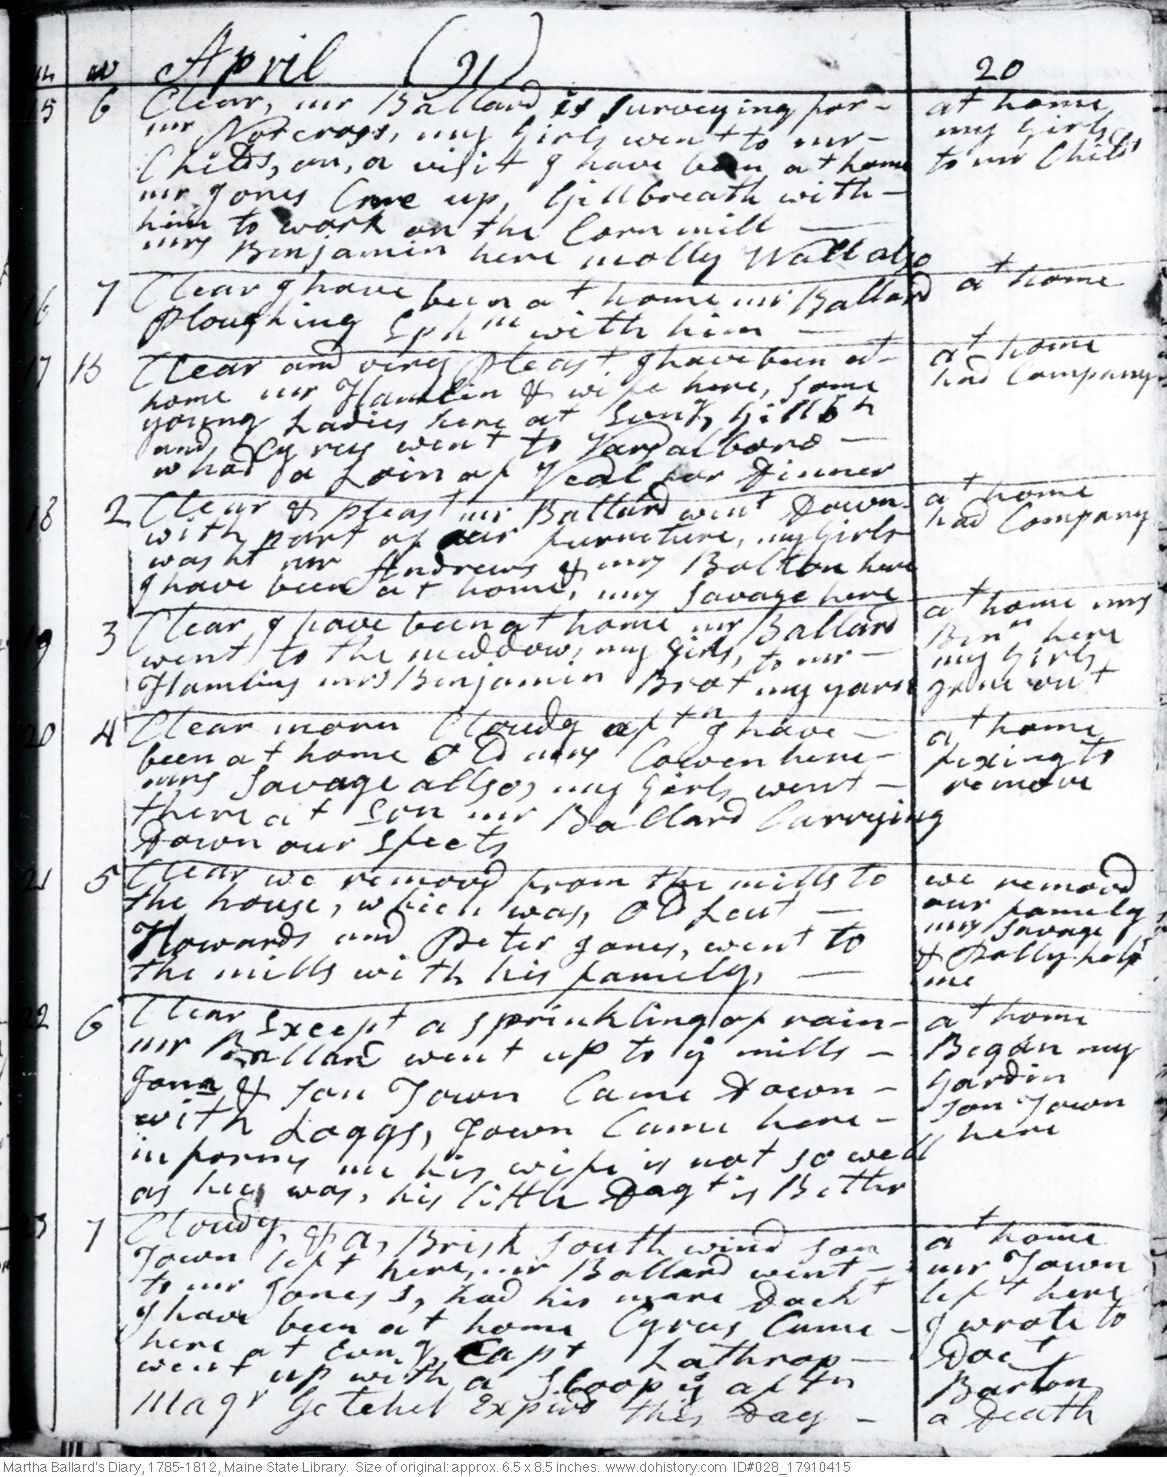 m w April (91) 20
15 6 Clear, mr Ballard is Surveying for - at home
mr Norcross, my Girls went to mr - my Girls
Childs, on, a visit I have been at home to mr Childs
mr Jones Came up, Gillbreath with -
him to work on the Corn mill -
mrs Benjamin here molly Wall also
16 7 Clear I have been at home mr Ballard at home
Ploughing Ephm with him -
17 1B Clear and very Pleast. I have been at - at home
home mr Hamlin & wife here, Some had Company
young Ladies here at Sunst, Gillbh
and Cyrus went to Varsalboro -
w had a Loin of Veal for Dinner
18 2 Clear & pleast mr Ballard went Down - at home
with part of our furneture, my Girls had Company
washt mr Andrews & mrs Bolton here
I have been at home, mrs Savage here
19 3 Clear I have been at home mr Ballard at home mrs
went to the meddow, my Girls, to mr - Binn here
Hamlins mrs Benjamin Brot my yarn my Girls
gone out
20 4 Clear morn Cloudy aftn I have - at home
been at home Old mrs Cowen here - fixing to
mrs Savage allso, my Girls went - remove
there at Son mr Ballard Carrying
Down our Efects
21 5 Clear we removd from the mills to we removd
the house, which was, Old Leut - our famely
Howards and Peter Jones, went to mrs Savage
the mills with his famely, - & Polly helpt
me
22 6 Clear Except a sprinkling of rain - at home
mr Ballard went up to ye mills - Began my
Jonn & Son Town Came Down - Gardin
with Loggs, Town Came here - Son Town
informs me his wife is not so well here
as shee was, his little Dagt is Better
23 7 Cloudy, & a, Brisk South wind Son at home
Town left here, mr Ballard went - mr Town
to mr Jones s, had his mare Dockt left here
I have been at home Cyrus Came - I wrote to
here at Evng, Capt Lathrop - Doct
went up with a Sloop ye aftn Barton
Magr Getchel Expird this Day - a Death
Martha Ballard's Diary, 1785-1812, Maine State Library. Size of original: approx. 6.5 x 8.5 inches. www.dohistory.com ID#028_17910415